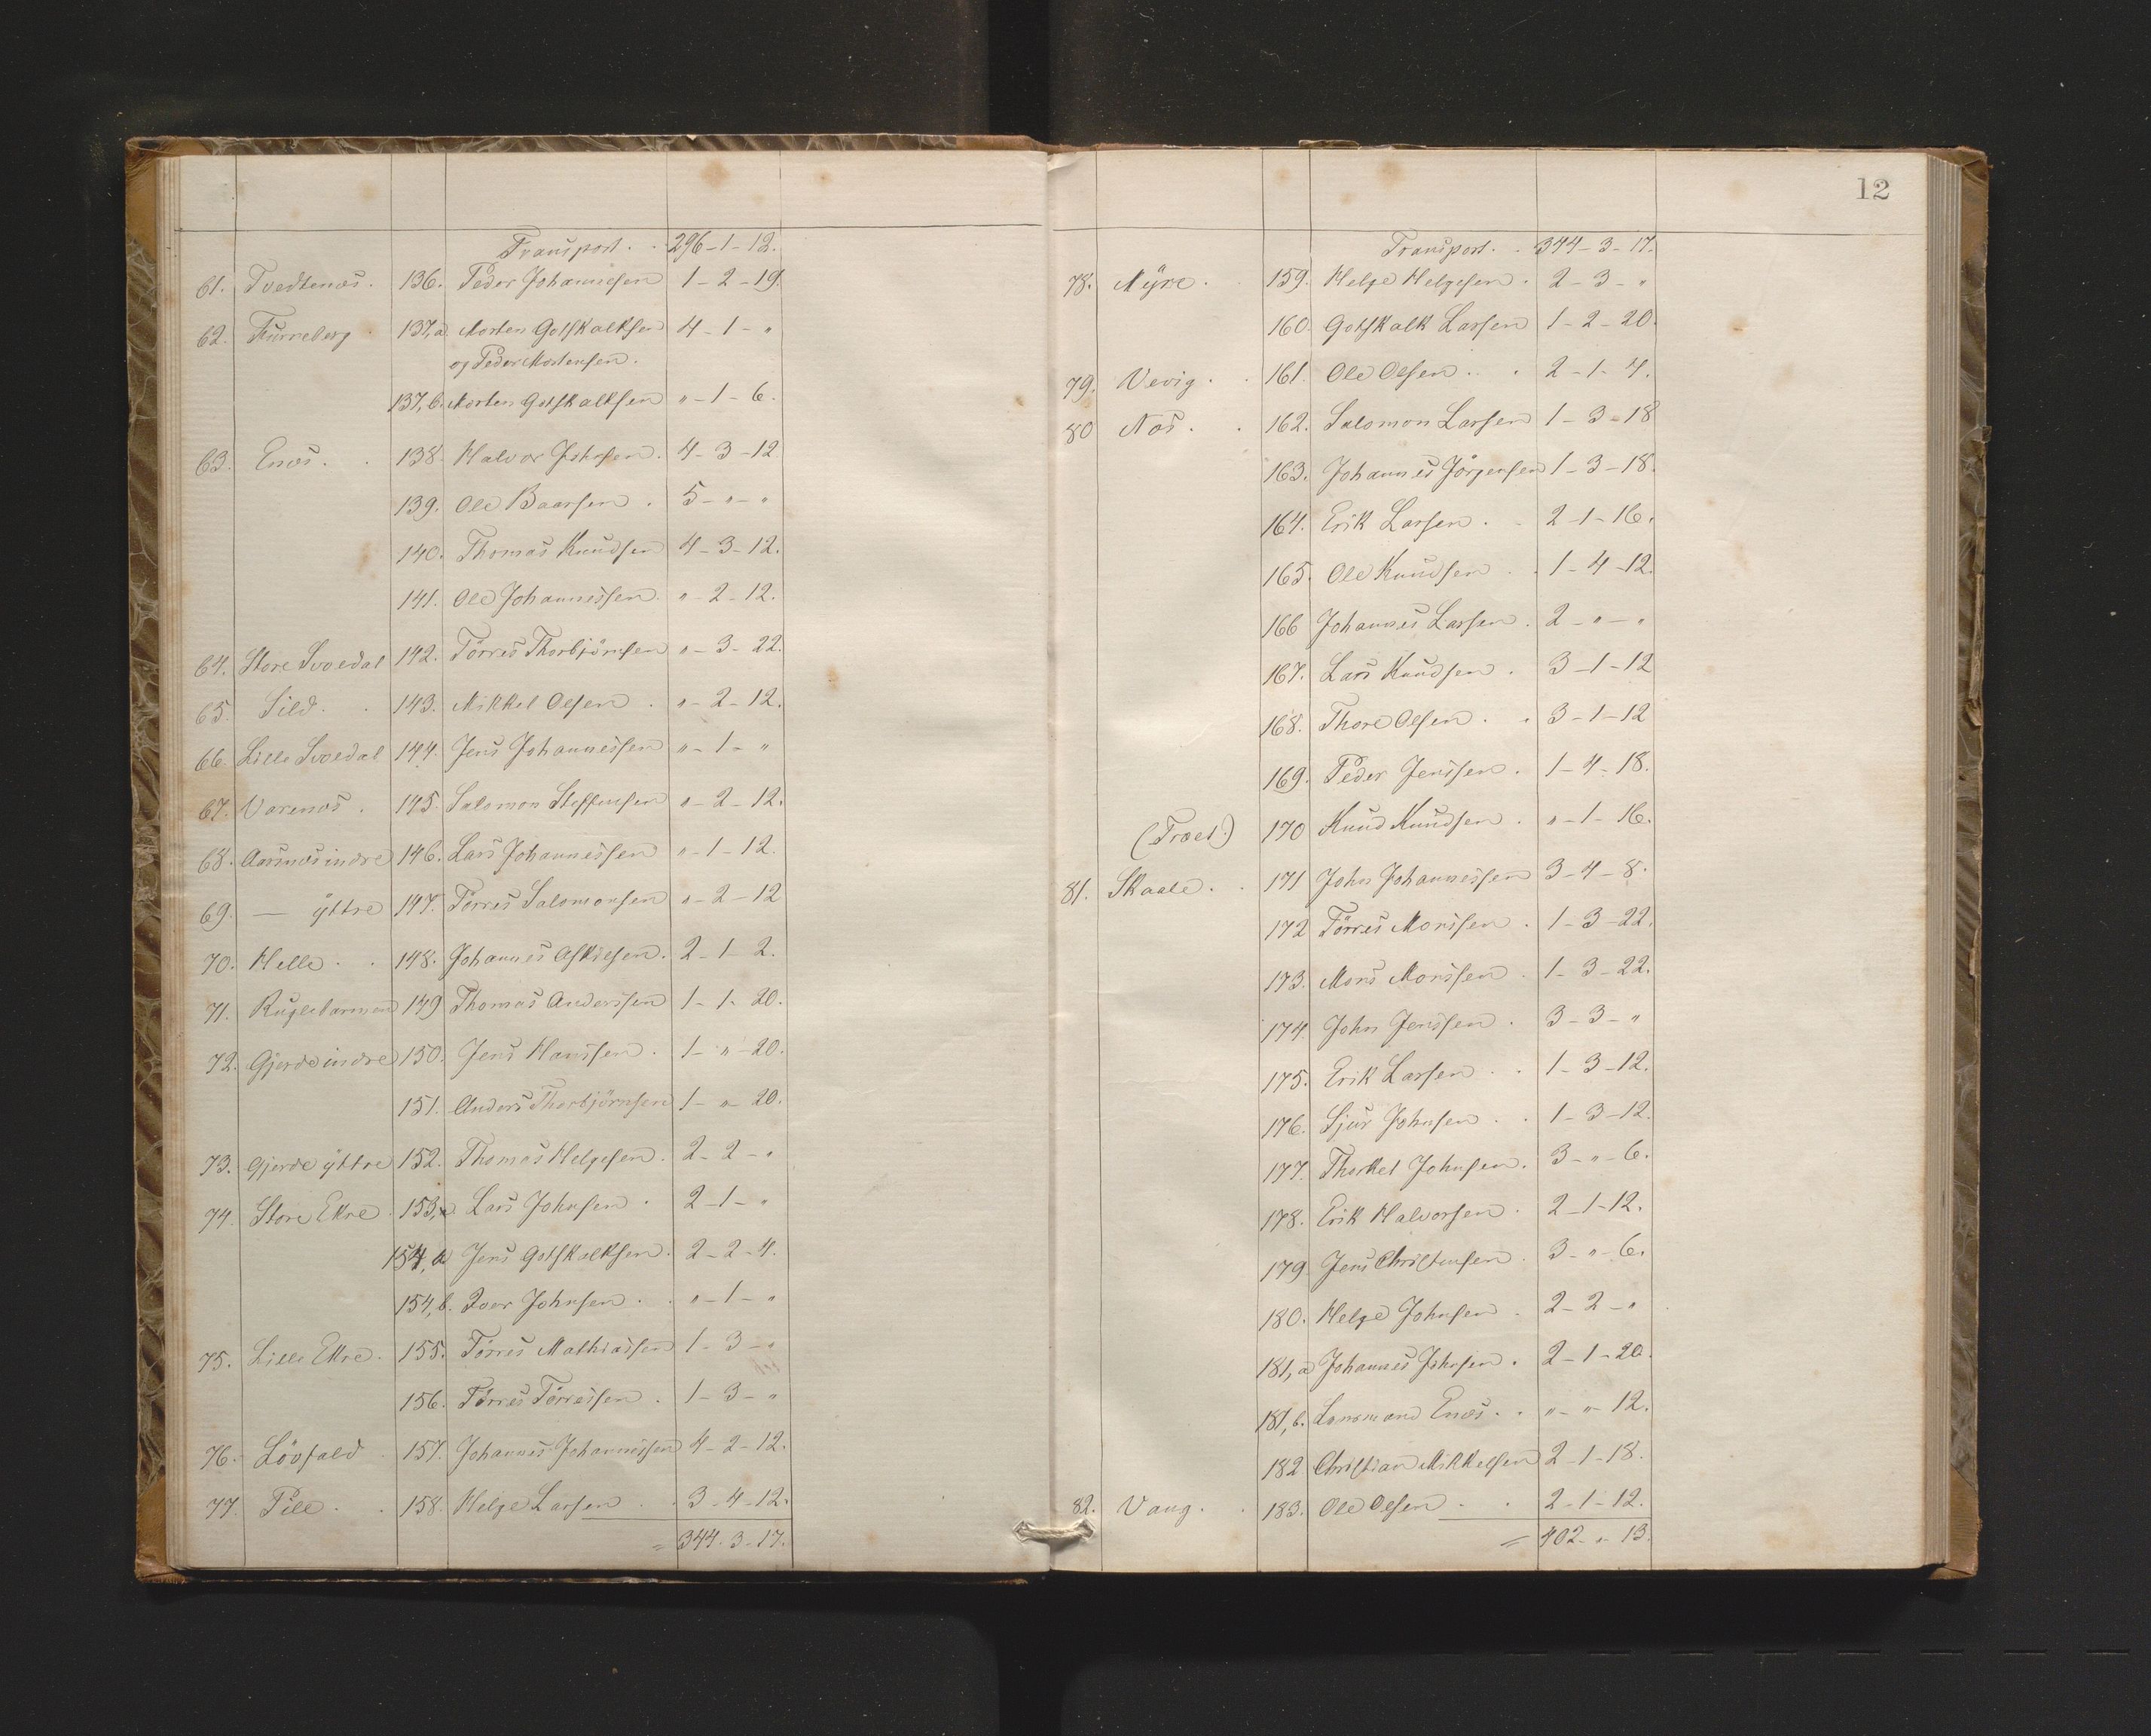 Transport. . 296-1-12.
61. Tvedtenæs. 136. Peder Johannessen 1-2-19.
62. Furreberg. 137,a Morten Gotskalksen 4-1-"
og Peder Mortensen.
137,b. Morten Gotskalksen "-1-6.
63. Enæs. . 138. Halvor Johnsen. 4-3-12
139. Ole Baarsen. 5-"-"
140. Thomas Knudsen 4-3-12.
141. Ole Johannessen. "-2-12.
64. Store Svoedal 142. Törres Thorbjörnsen "-3-22.
65. Sild. . 143. Mikkel Olsen. "-2-12.
66. Lille Svoedal 144. Jens Johannessen "-1-"
67. Varenæs. 145. Salomon Steffensen "-2-12.
68. Aasnæs indre 146. Lars Johannessen "-1-12.
69. — ÿttre 147. Törres Salomonsen "-2-12
70. Helle. . 148. Johannes Askiesen. 2-1-2.
71. Ruglebarmen 149 Thomas Anderssen 1-1-20.
72. Gjerde indre 150. Jens Hanssen. 1-"-20.
151. Anders Thorbjörnsen 1-"-20.
73. Gjerde ÿttre 152. Thomas Helgesen. 2-2-"
74. Store Ekre. 153,a. Lars Johnsen. 2-1-"
154,a Jens Gotskalksen. 2-2-4.
154,b. Iver Johnsen. . "-1-"
75. Lille Ekre. 155. Törres Mathiassen 1-3-"
156. Törres Törressen. 1-3-"
76. Lövfald. 157. Johannes Johannessen 4-2-12.
77. Pile. . 158. Helge Larsen. . 3-4-12.
= 344.3-17.
12
Transport. . 344-3-17.
78. Mÿre. 159. Helge Helgesen. 2-3-"
160. Gotskalk Larsen 1-2-20.
79. Vevig. . 161. Ole Olsen. . 2-1-4.
80 Næs. . 162. Salomon Larsen 1-3-18
163. Johannes Jörgensen 1-3-18.
164. Erik Larsen. . 2-1-16.
165. Ole Knudsen. . 1-4-12.
166 Johannes Larsen. 2-"-"
167. Lars Knudsen. 3-1-12
168. Thore Olsen. . 3-1-12
169. Peder Jenssen. 1-4-18.
(Træet.) 170 Knud Knudsen. "-1-16.
81. Skaale. . 171 John Johannessen 3-4-8.
172 Törres Monssen. 1-3-22.
173. Mons Monssen. 1-3-22.
174. John Jenssen. 3-3-"
175. Erik Larsen. . 1-3-12.
176. Sjur Johnsen. . 1-3-12.
177. Thorkel Johnsen. 3-"-6.
178. Erik Halvorsen. 2-1-12.
179. Jens Christensen. 3-"-6.
180. Helge Johnsen. 2-2-"
181,a Johannes Johnsen. 2-1-20.
181,b. Lensmand Enæs. . "-"-12.
182 Christian Mikkelsen 2-1-18.
82. Vang. . 183. Ole Olsen. . 2-1-12.
= 402-"-13.